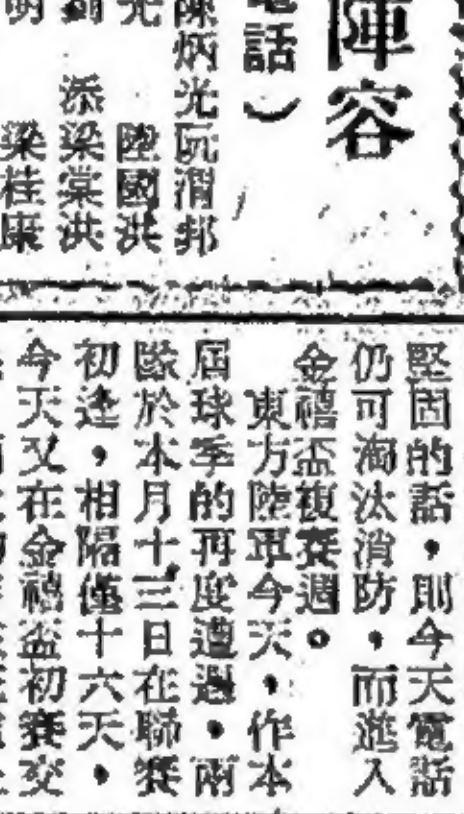 陣容
電話）
陳炳光阮渭邦
光 陸國洪
添梁棠洪
梁桂康
堅固的話，則今天電話
仍可淘汰消防，而進入
金禧盃複賽週。
東方陸軍今天，作本
屆球季的再度遭遇，兩
隊於本月十三日在聯賽
初逢，相隔僅十六天，
今天又在金禧盃初賽交